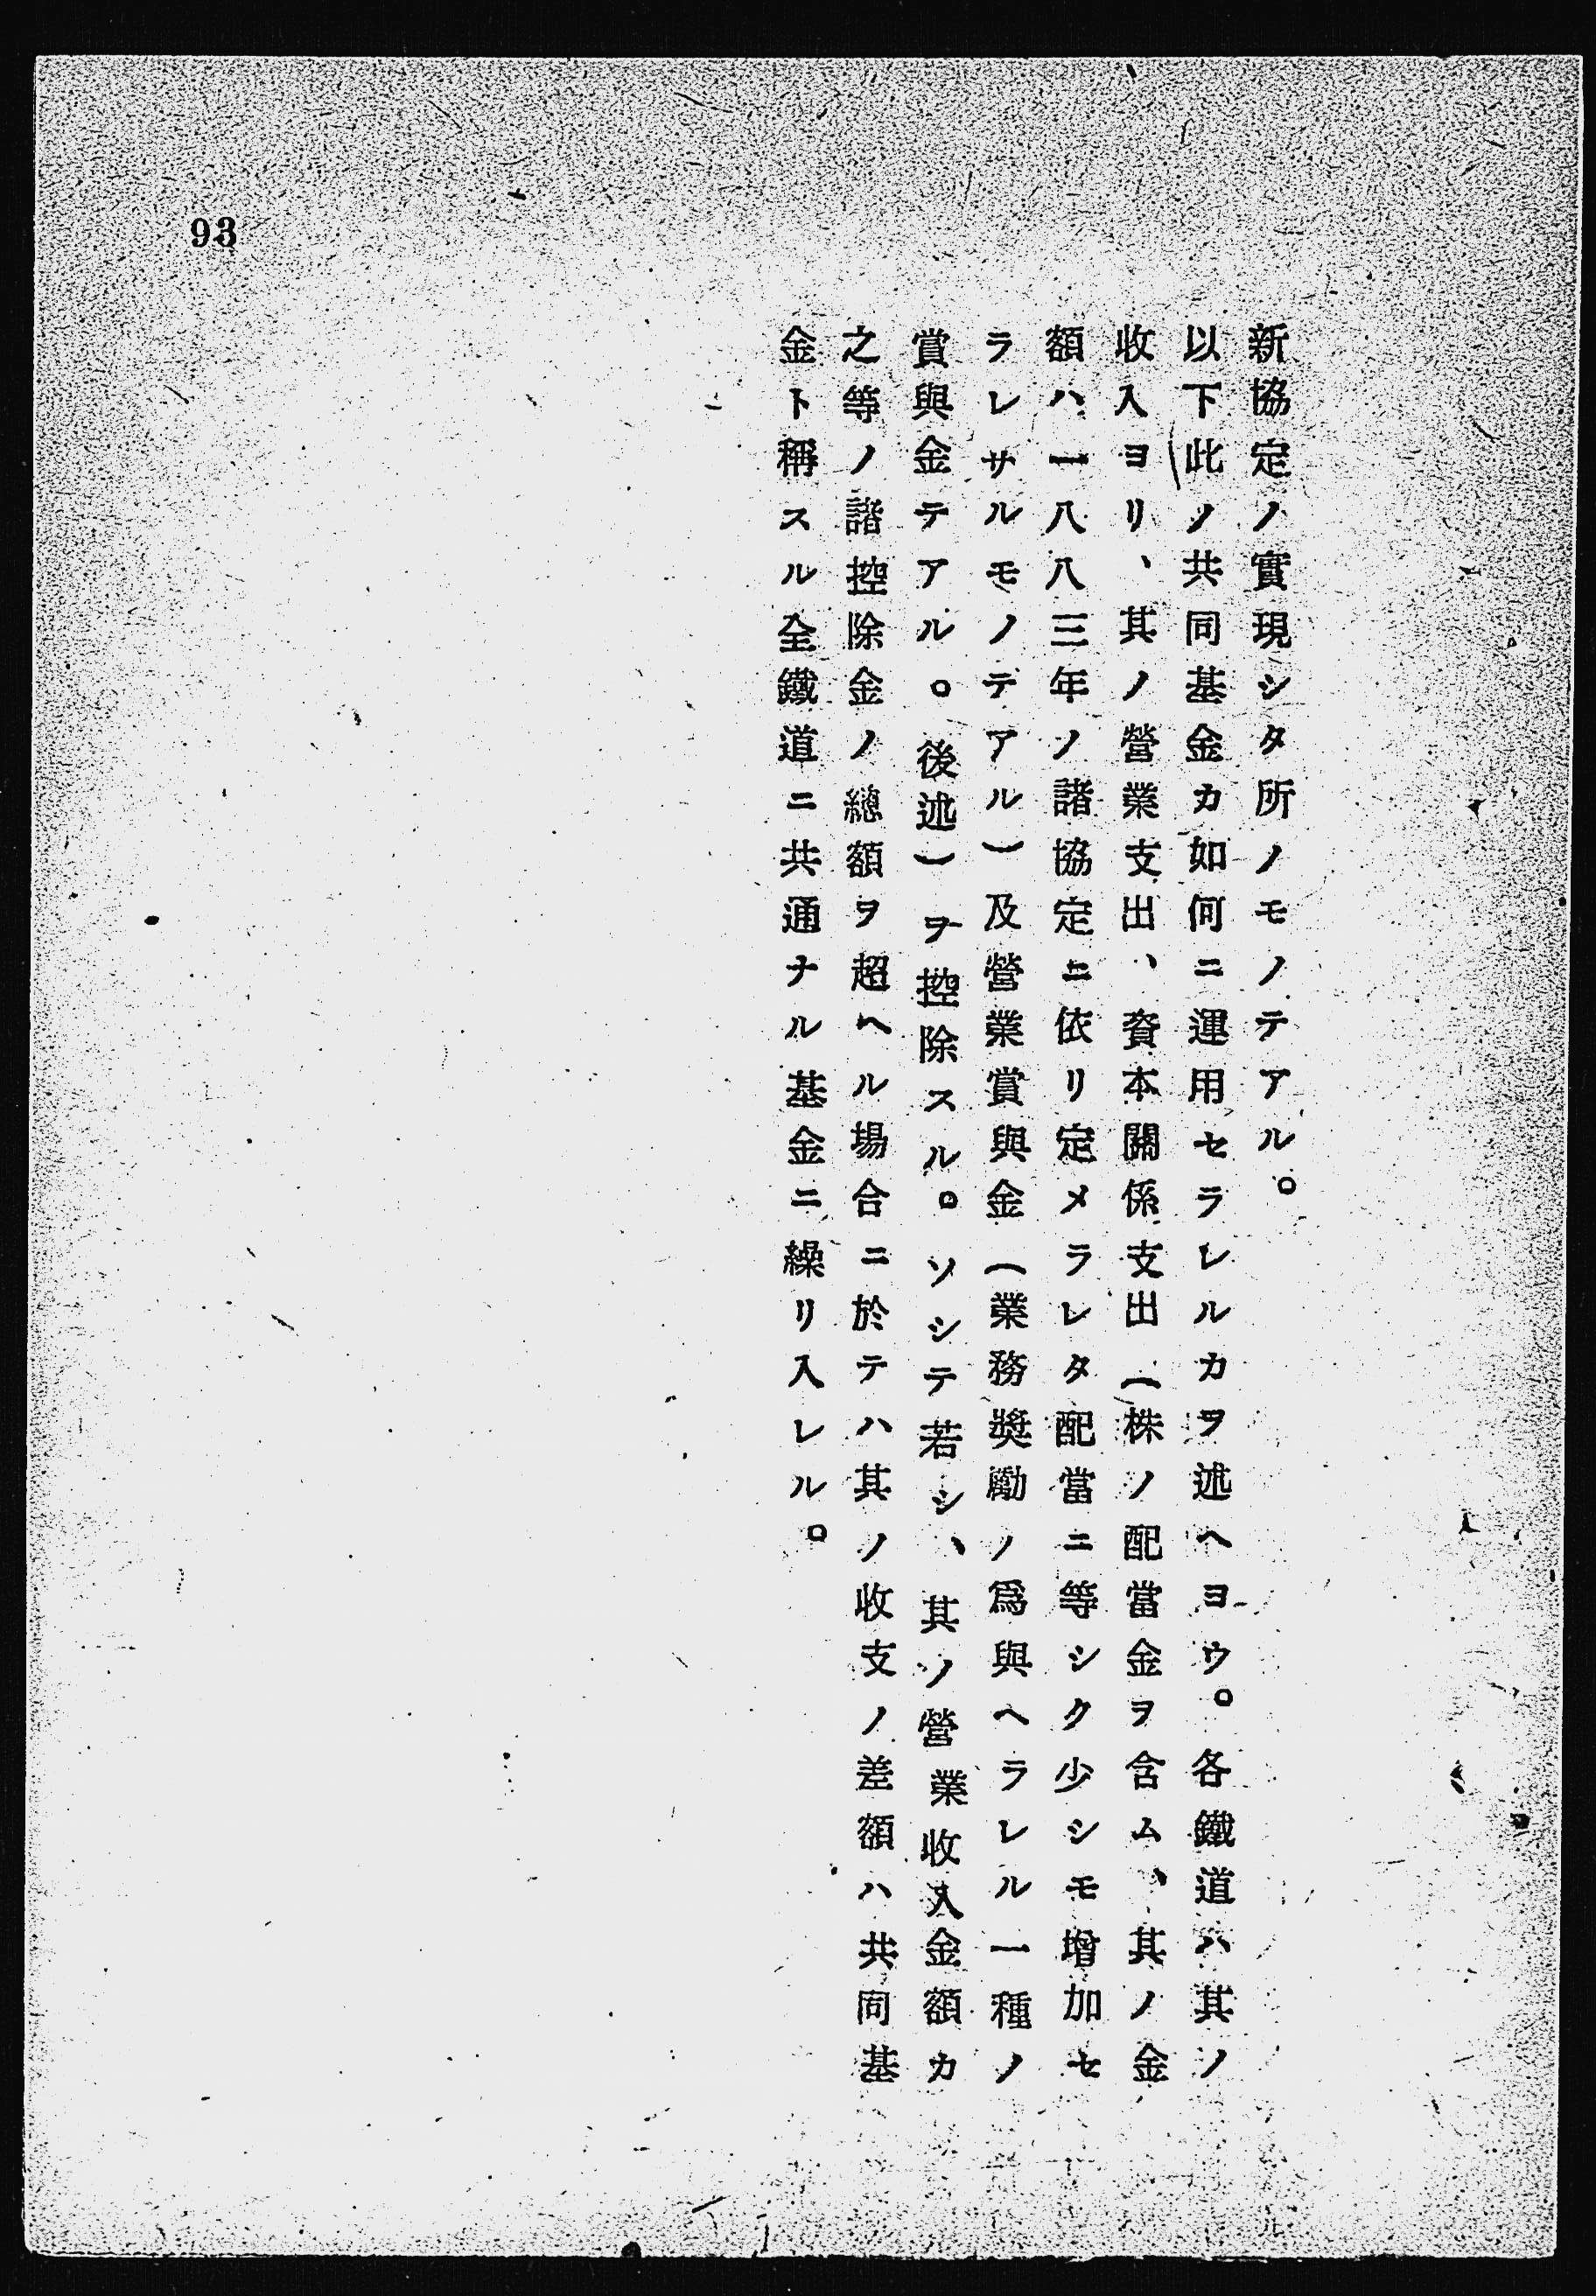 新協定ノ實現シタ所ノモノテアル。
以下此ノ共同基金カ如何ニ運用セラレルカヲ述ヘヨウ。各鐵道ハ其ノ
收入ヨリ、其ノ營業支出、資本關係支出(株ノ配當金ヲ含ム、其ノ金
額ハ一八八三年ノ諸協定ニ依リ定メラレタ配當ニ等シク少シモ增加セ
ラレサルモノテアル)及營業賞與金(業務奬勵ノ爲與ヘラレル一種ノ
賞與金テアル。後述)ヲ控除スル。ソシテ若シ、其ノ營業收入金額カ
之等ノ諸控除金ノ總額ヲ超ヘル場合ニ於テハ其ノ收支ノ差額ハ共同基
金ト稱スル全鐵道ニ共通ナル基金ニ繰リ入レル。
93